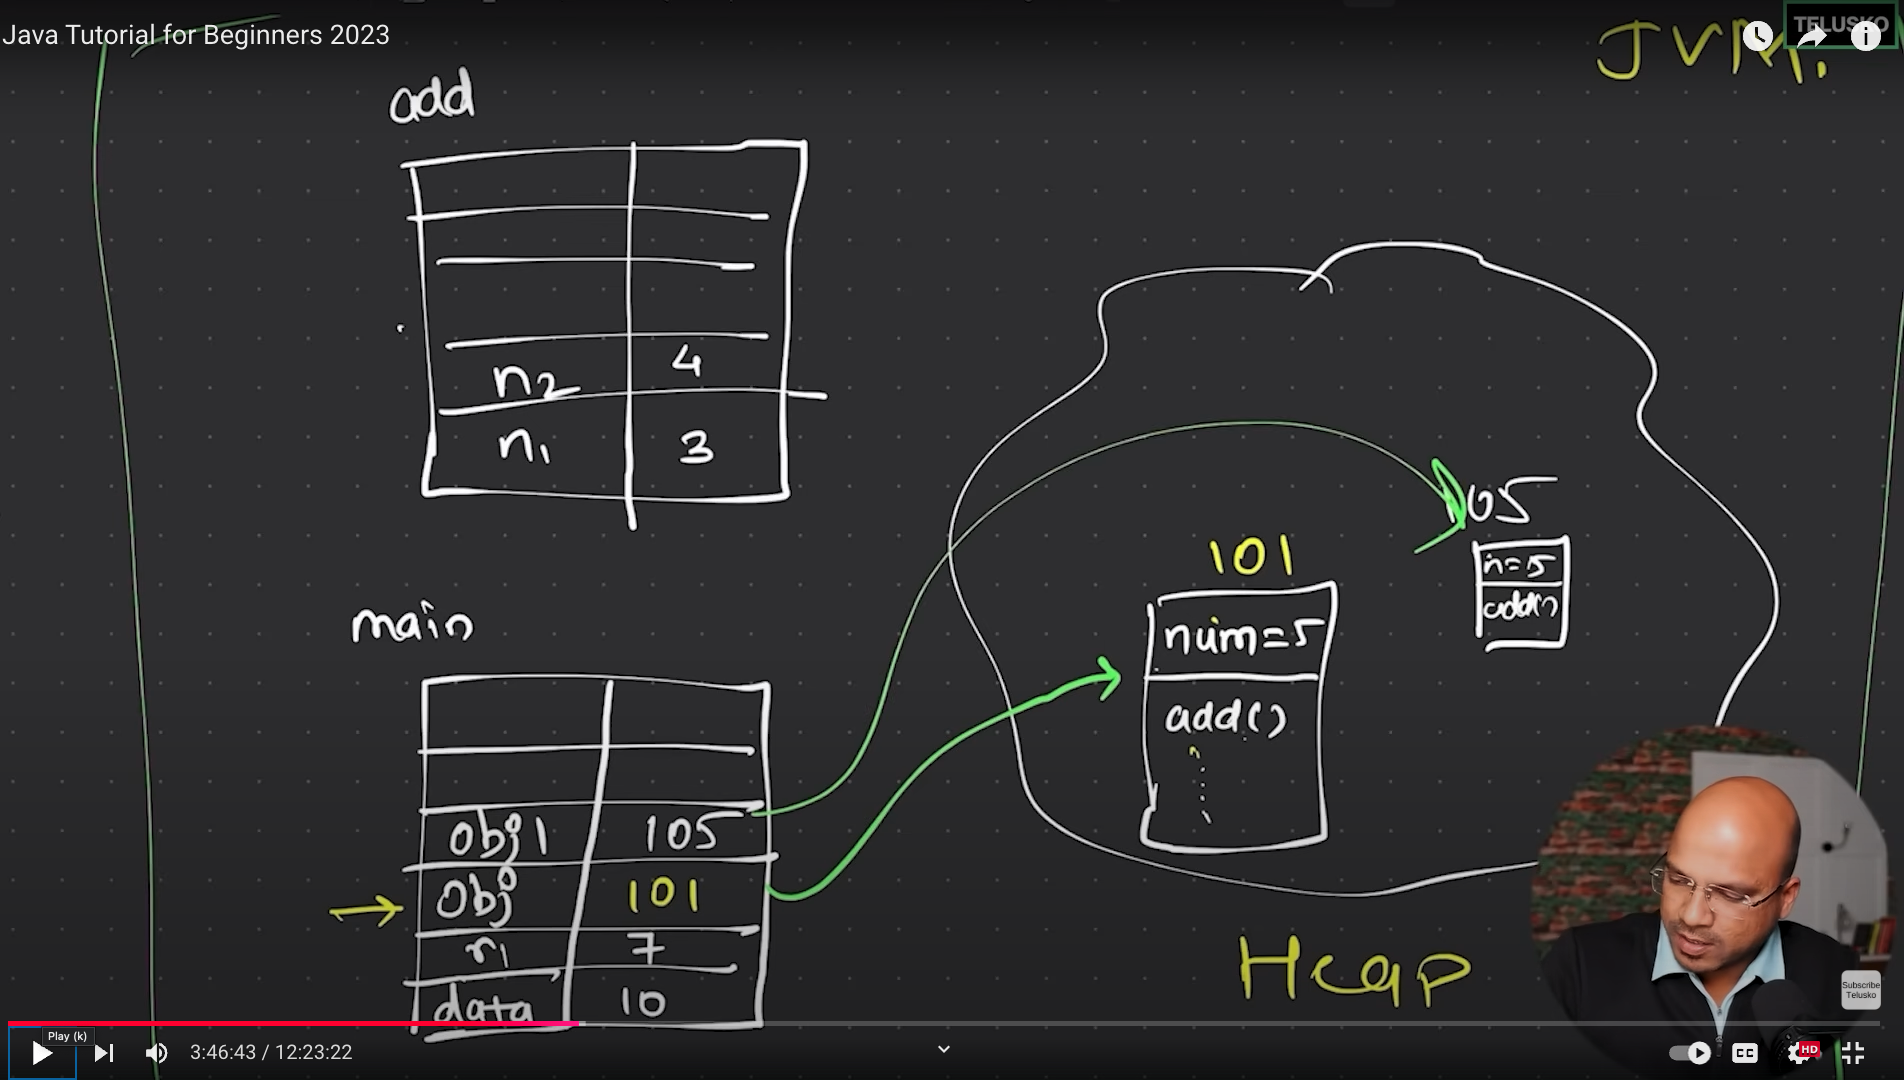 Java Tutorial for Beginners 2023
TELUSKO
JVM.
add
n2 4
n1 3
main
obj1 105
obj 101
r1 7
data 10
105
n=5
add()
101
num=5
add()
Heap
Subscribe
Telusko
Play (k)
3:46:43 / 12:23:22
CC
HD